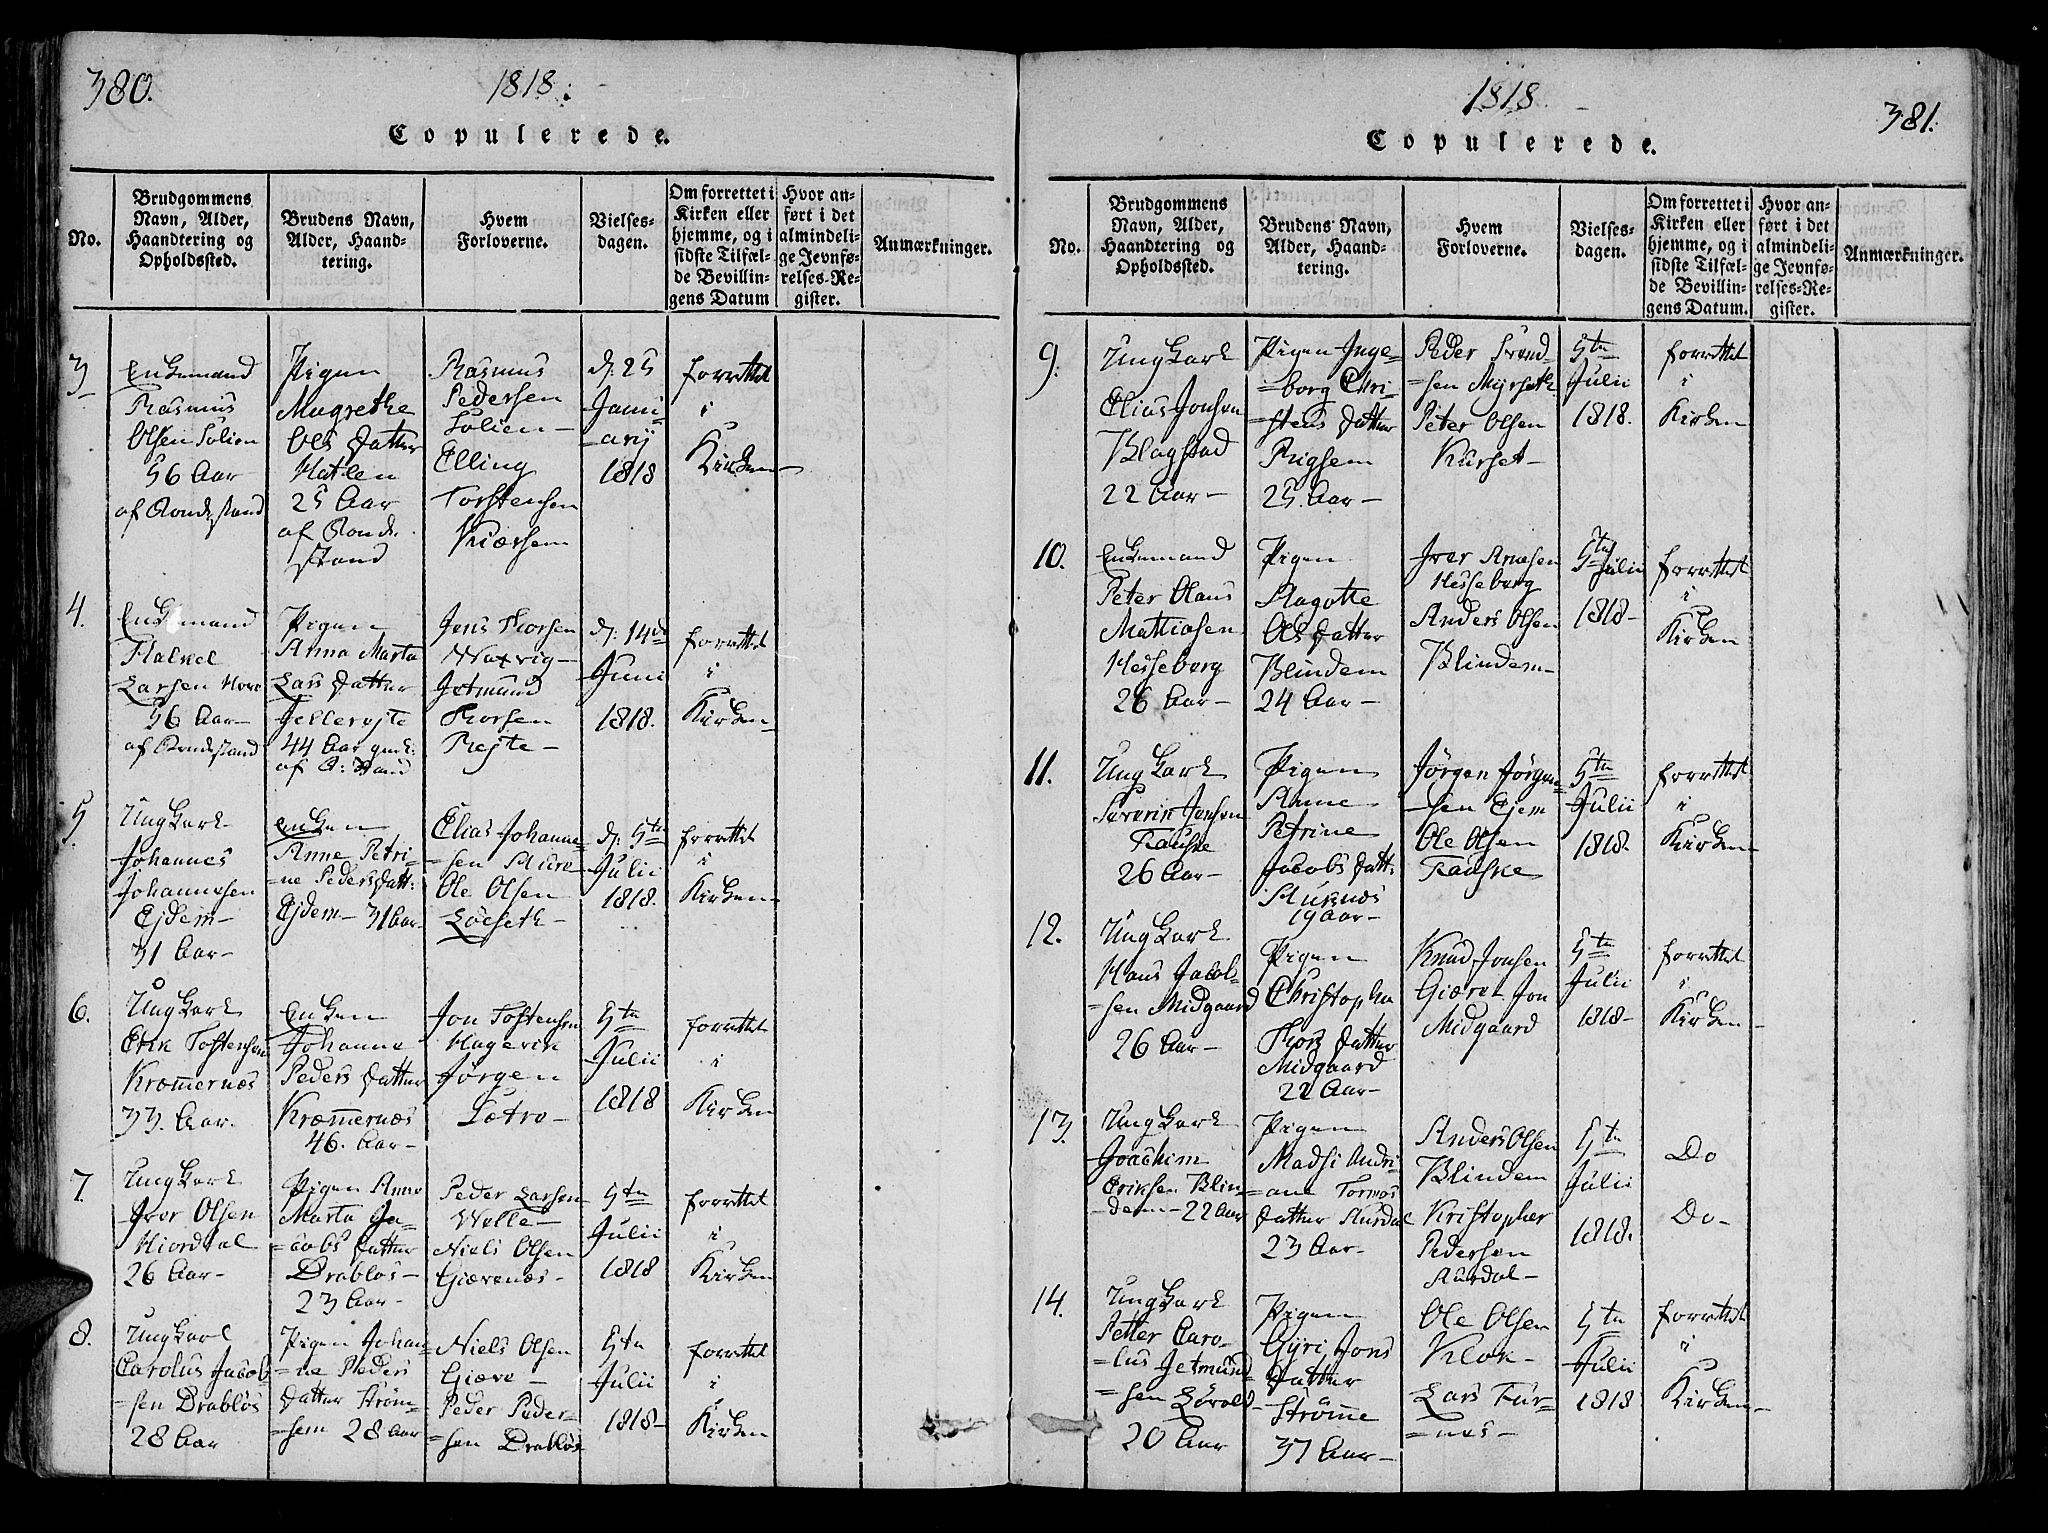 380.
1818.
Copulerede.
No.
Brudgommens
Navn, Alder,
Haandtering og
Opholdssted.
Brudens Navn,
Alder, Haand-
tering.
Hvem
Forloverne.
Vielses-
dagen.
Om forrettet i
Kirken eller
hjemme, og i
sidste Tilfæl-
de Bevillin-
gens Datum
Hvor an-
ført i det
almindeli-
ge Jevnfø-
relses-Re-
gister.
Anmærkninger.
3
Enkemand
Rasmus
Olsen Solien
56 Aar
af Bondestand
Pigen
Magrethe
Ols Datter
Hatlen
25 Aar
af Bonde
stand
Rasmus
Pedersen
Solien-
Elling
Torstensen
Kiersem
d: 25
Janu-
arij
1818
forrettet
i
Kirken-
4.
Enkemand
Larsen
56 Aar-
af Bondestand
Pigen
Anna Marta
Lars Datter
44 Aar
af B: stand
Jens Thorsen
Jetmund
Thorsen
d: 14de
Juni
1818.
forrettet
i
Kirken-
5
Ungkarl
Johannes
Johannesen
Ejdem-
31 Aar-
Enken
Anne Petri-
ne Peders Datt:
Ejdem- 31 Aar-
Elias Johanne-
=sen Aure
Ole Olsen
Løeseth-
d: 5te
Julii
1818.
forrettet
i
Kirken-
6.
Ungkarl
Erik Tostensen
Kræmernæs
33. Aar.
Enken
Johanne
Peders Datter
Kræmernæs
46. Aar-
Jon Tostensen
Hagevik
Jørgen
Sætre-
5te
Julii
1818
forrettet
i
Kirken
7.
Ungkarl
Iver Olsen
Hiordal
26 Aar-
Pigen Anne
Marta Ja-
=cobs Datter
Drabløs-
23 Aar-
Peder Larsen
Welle-
Niels Olsen
Giævenæs-
5te
Julii
1818
forrettet
i
Kirken
8.
Ungkarl
Carolus Jacob-
=sen Drabløs
28 Aar
Pigen Johan-
=ne Peders
Datter Strøm-
=sem 28 Aar
Niels Olsen
Giæve-
Peder Peder-
=sen Drabløs
5te
Julii
1818-
forrettet
i
Kirken
1818
381.
Copulerede.
No.
Brudgommens
Navn, Alder,
Haandtering og
Opholdssted.
Brudens Navn,
Alder, Haand-
tering.
Hvem
Forloverne.
Vielses-
dagen.
Om forrettet i
Kirken eller
hjemme, og i
sidste Tilfæl-
de Bevillin-
gens Datum.
Hvor an-
ført i det
almindeli-
ge Jevnfø-
relses-Re-
gister.
Anmærkninger.
9.
Ungkarl
Elias Jonsen
Blagstad
22 Aar-
Pigen Inge-
=borg Chri-
=stens Datter
Rigsem
25. Aar-
Peder Svend-
=sen Myrseth
Peter Olsen
Kurset-
5te
Julii
1818.
forrettet
i
Kirken
10.
Enkemand
Peter Olaus
Mathiasen
Hesseberg
26 Aar-
Pigen
Magothe
Ols Datter
Blindem
24 Aar-
Iver Arnesen
Hesseberg
Anders Olsen
Blindem-
5te
Julii
1818-
forrettet
i
Kirken
11.
Ungkarl
Severin Jensen
Fauske
26 Aar-
Pigen
Anne
Petrine
Jacobs Datt:
Aurnæs
19 Aar-
Jørgen Jørgen-
-sen Ejem
Ole Olsen
Fauske
5te
Julii
1818.
forrettet
i
Kirken-
12.
Ungkarl
Hans Jacob-
=sen Midgaard
26 Aar-
Pigen
Christopha
Thors Datter
Midgaard
22 Aar-
Knud Jonsen
Giæret Jon
Midgaard
5te
Julii
1818-
forrettet
i
Kirken-
13.
Ungkarl
Joachim
Eriksen Blin-
-dem- 22 Aar
Pigen
Madsi Andri-
=ane Tormos
Datter Aurdal
23 Aar-
Anders Olsen
Blindem
Kristopher
Pedersen
Aurdal-
5te
Julii
1818.
Do
Do-
14.
Ungkarl
Petter Caro-
=lus Jetmund-
=sen
20 Aar
Pigen
Gyri Jons
Datter
Strømme
37 Aar-
Ole Olsen
Klok-
Lars Fur-
=nes-
5te
Julii
1818
forrettet
i
Kirken-